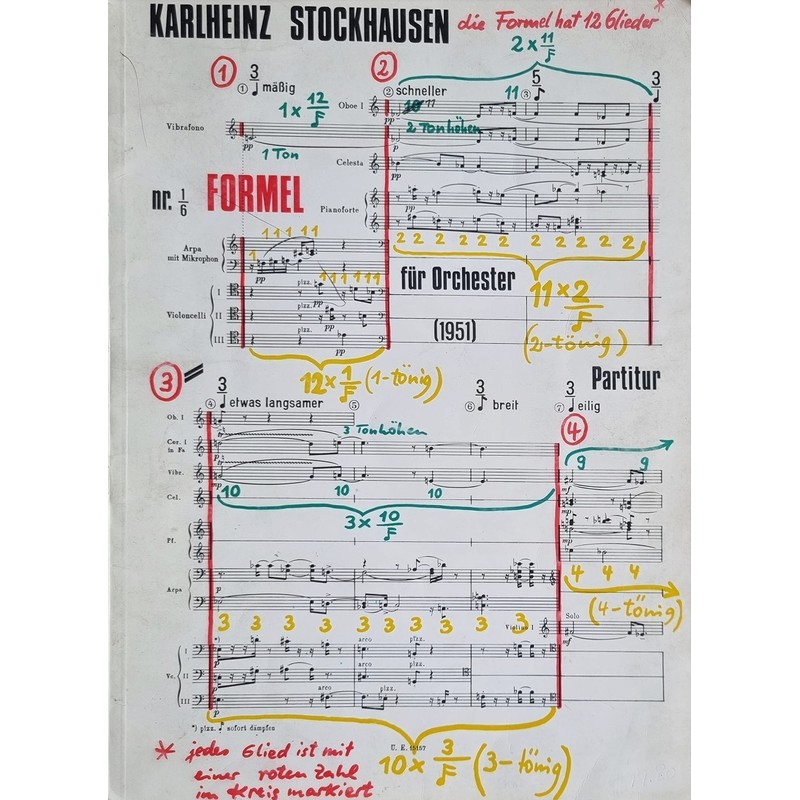 KARLHEINZ STOCKHAUSEN die Formel hat 12 Glieder *
2 x 11/
1 3 mäßig 2 schneller 11 5 3
1 x 12/
Oboe I 10 11
pp
Vibrafono
pp
2 Tonhöhen
1 Ton
Celesta
pp
nr. 1/6 FORMEL
Pianoforte
pp
1 1 1 1 1 1
2 2 2 2 2 2 2 2 2 2 2
Arpa
mit Mikrophon
pp
1 1 1 1 1 1
für Orchester
11 x 2/
(2-tönig)
Violoncelli I II III
pizz. pp
pizz. pp
pizz. pp
(1951)
12 x 1/ (1-tönig)
Partitur
3
3 etwas langsamer 3 breit 3 eilig
4 5 6 7
4
Ob. I
3 Tonhöhen
Cor. I
in Fa
9 9
Vibr.
mf
10 10 10
Cel.
mp
3 x 10/
Pf.
mp
4 4 4
Arpa
p
(4-tönig)
3 3 3 3 3 3 3 3 3 3
Violino I
Solo
mf
*) pizz. arco pizz.
Vc. I II III
arco pizz.
arco pizz.
p
*) pizz. sofort dämpfen
U. E. 15157
10 x 3/ (3-tönig)
* jedes Glied ist mit
einer roten Zahl
im Kreis markiert